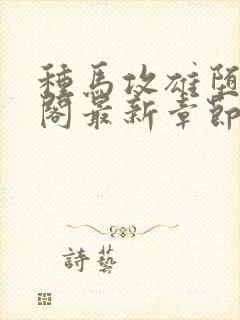 種馬攻雄堕
閣最新章節
詩藝